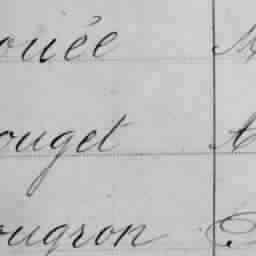 ouée
ouget
ougron